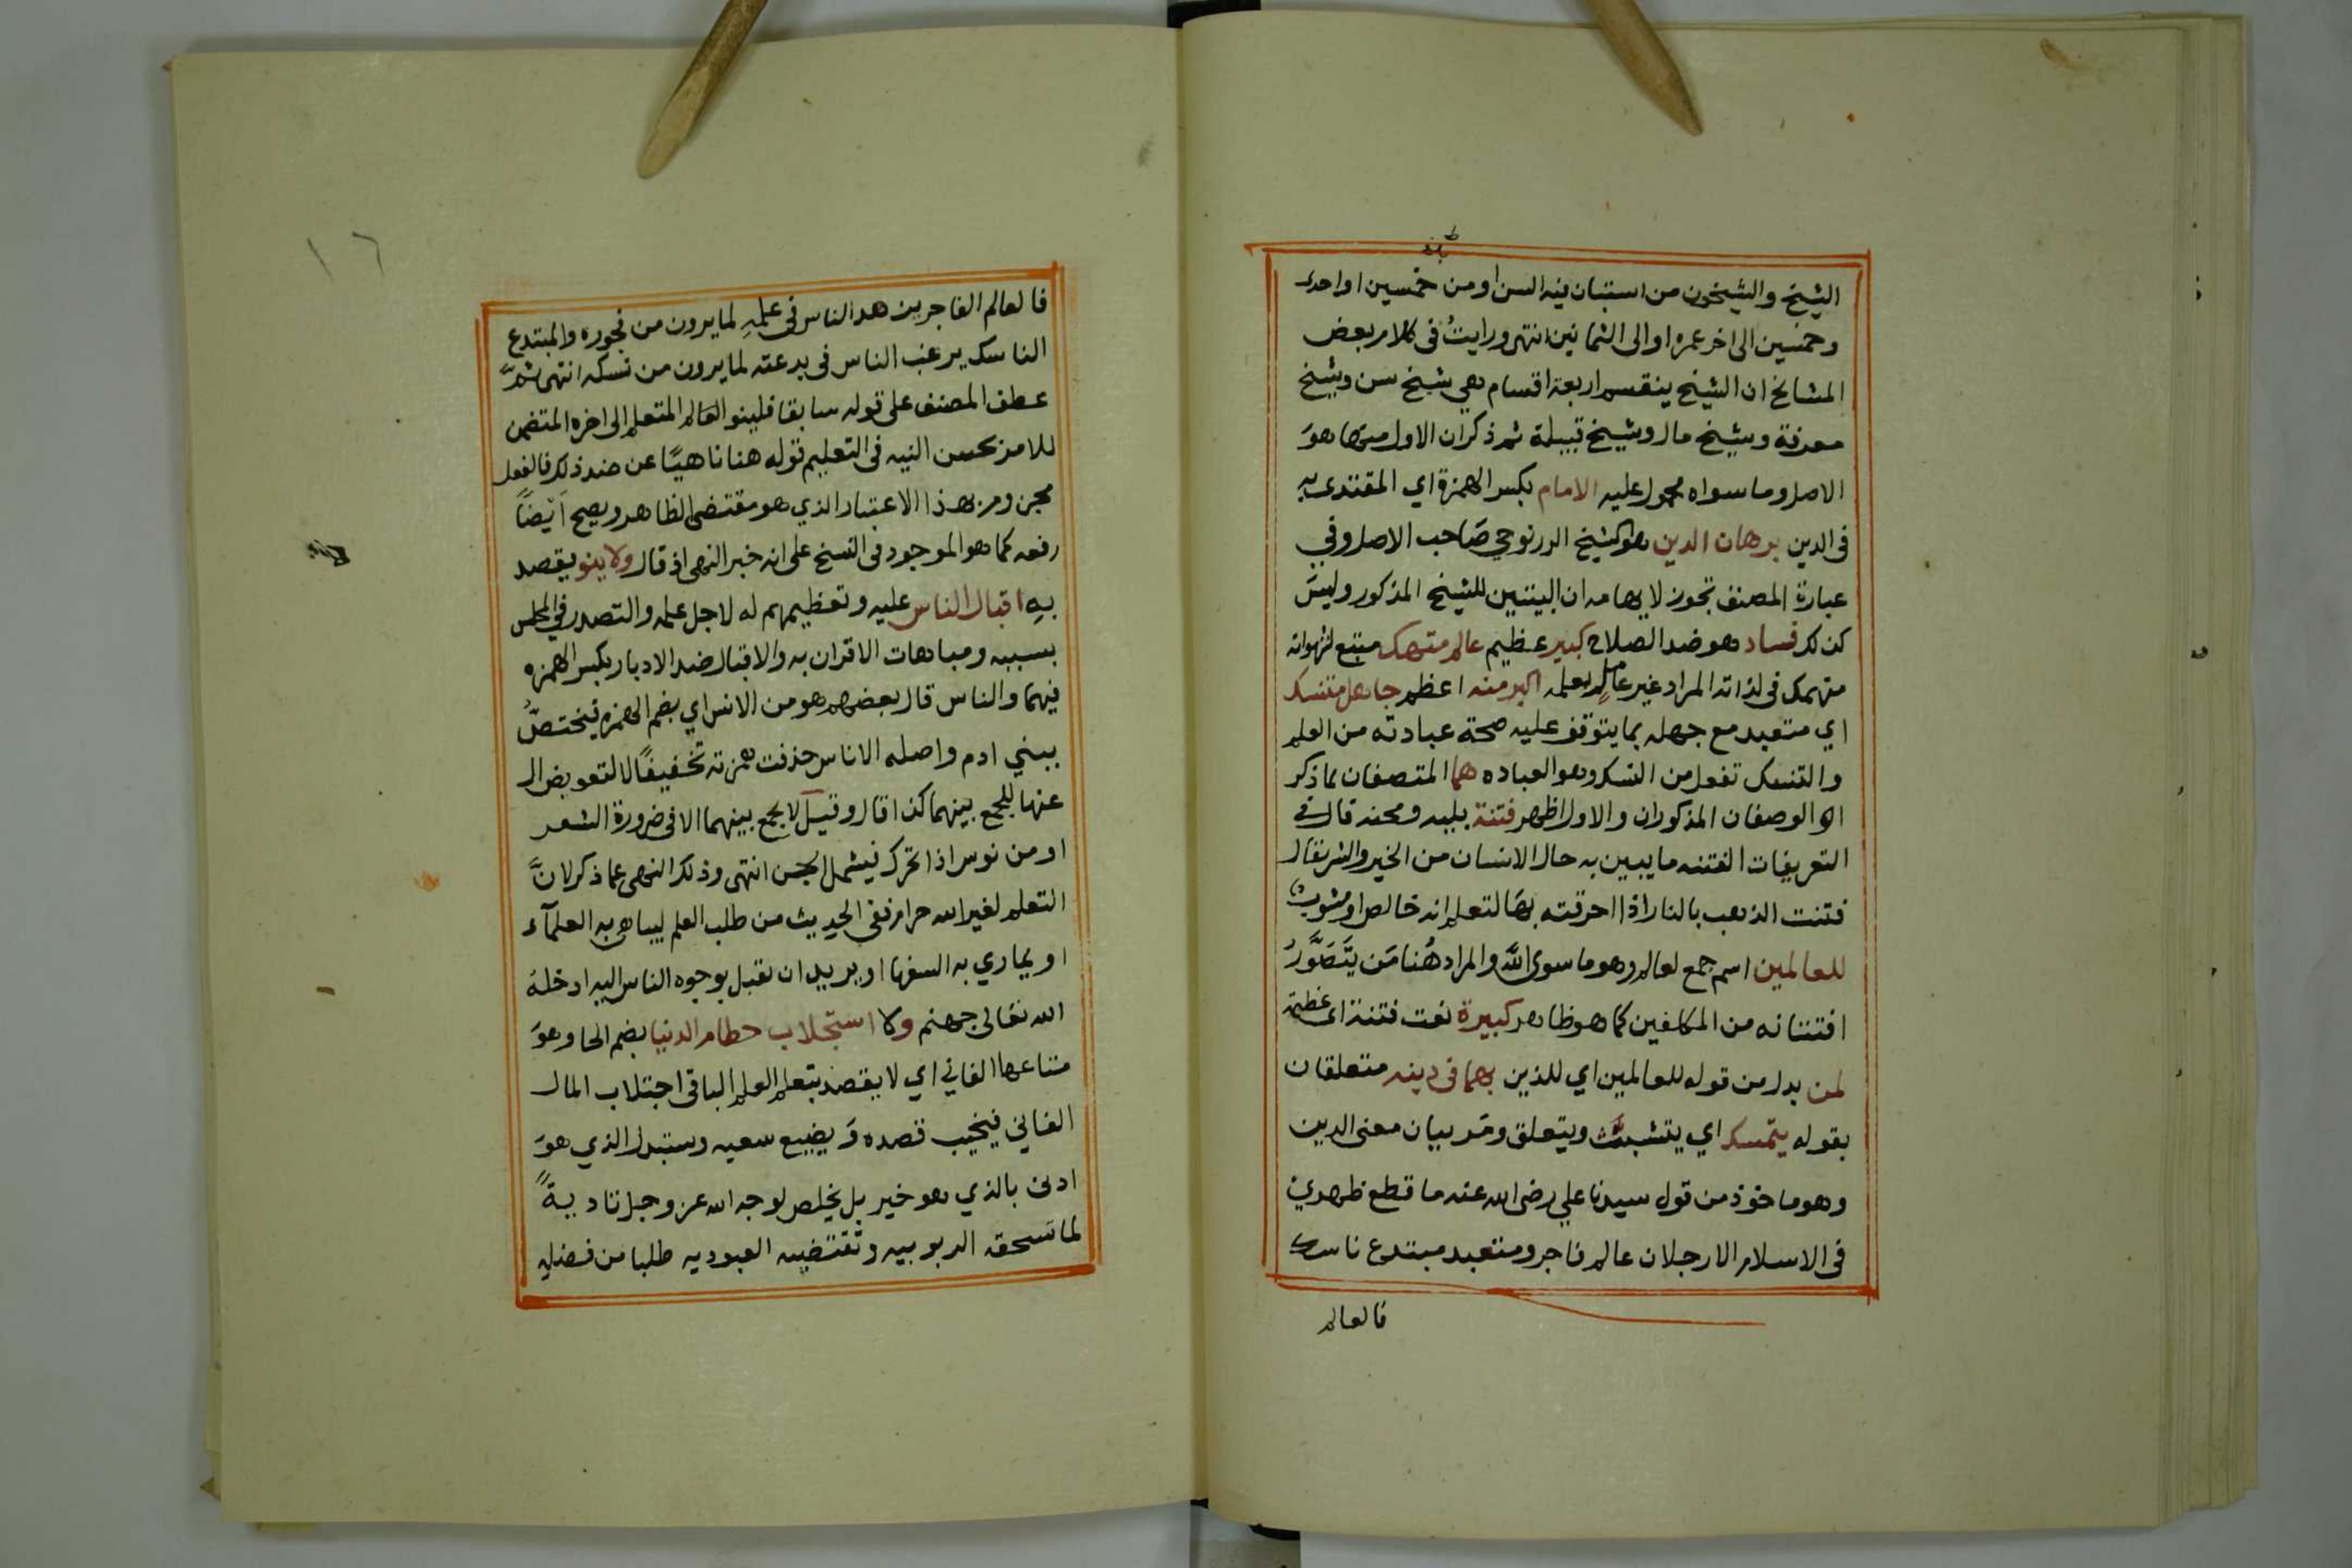 الشيخ والشيخون من استبان فيه السن او من خمسين او احدى
وخمسين الى اخر عمره او الى الثمانين انتهى ورايتُ فى كلام بعض
المشايخ ان الشيخ ينقسم اربعة اقسام وهي شيخ سن وشيخ
معرفة وشيخ مال وشيخ قبيلة ثم ذكر ان الاول منها هوَ
الاصل وما سواه محمول عليه الامام بكسر الهمزة اي المقتدى به
فى الدين برهان الدين هو الشيخ الزرنوجي صَاحب الاصل وفي
عبارة المصنف تجوز لايهامه ان البيتين للشيخ المذكور وليسَ
كذلك فساد هو ضد الصلاح كبير عظيم عالم متهتك متبع لشهواته
منهمك فى لذاته المراد غير عاملٍ بعلمه اكبر منه اعظم جاهل متنسك
اي متعبد مع جهله بما يتوقف عليه صحة عبادته من العلم
والتنسك تفعل من النسك وهو العباده هما المتصفان بما ذكر
او الوصفان المذكوران والاول اظهر فتنة بليه ومحنه قال في
التعريفات الفتنه ما يبين به حال الانسان من الخير والشر يقال
فتنت الذهب بالنار اذا احرقته بهَا لتعلم انه خالص او مشوبٌ
للعالمين اسم جمع لعالم وهو ما سوى اللّه والمراد هُنا مَن يَتَصَوَّرُ
افتتانه من المكلفين كما هو ظاهر كبيرة نعت فتنة اى عظيمة
لمن بدل من قوله للعالمين اي للذين بهما فى دينه متعلقان
بقوله يتمسك اي يتشبث ويتعلق ومَر بيان معنى الدين
وهو ماخوذ من قول سيدنا علي رضى الله عنه ما قطع ظهري
فى الاسلام الا رجلان عالم فاجر ومتعبد مبتدع ناسك
فالعالم
١٦
فالعالم الفاجر يزهد الناس فى علمهِ لما يرون من فجوره والمبتدع
الناسك يرغب الناس فى بدعته لما يرون من نسكه انتهى ثمَّ
عطف المصنف على قوله سابقا فلينو العالم المتعلم الى اخره المتضمن
للامر بحسن النيه فى التعليم قوله هنا ناهيًا عن ضد ذلك فالفعل
مجزوم بهذا الاعتبار الذي هو مقتضى الظاهر ويصح اَيْضًا
رفعه كما هو الموجود فى النسخ على انه خبر النهى اذ قال ولا ينو يقصد
بهِ اقبال الناس عليه وتعظيمهم له لاجل علمه والتصدر في المجلس
بسببه ومباهات الاقران به والاقبال ضد الادبار بكسر الهمزه
فيهما والناس قال بعضهم هو من الانس اي بضم الهمزه فيختصُّ
ببني ادم واصله الاناس حذفت همزته تخفيفًا لا لتعويض ال
عنها للجمع بينهما كذا قال وقيل لا يجمع بينهما الا فى ضرورة الشعر
او من نوس اذا تحرك فيشمل الجن انتهى وذلك النهى عما ذكر لانَّ
التعلم لغير الله حرام ففى الحديث من طلب العلم ليباهى به العلمآء
او يماري به السفها او يريد ان يقبل بوجوه الناس اليه ادخلهَ
الله تعَالى جهنم ولا استجلاب حطام الدنيا بضم الحا وهوَ
متاعها الفاني اي لا يقصد بتعلم العلم الباقى اجتلاب المال
الفاني فيخيب قصده وَ يضيع سعيه وستبدل الذي هوَ
ادنى بالذي هو خير بل يخلص لوجه الله عز وجل تاديةً
لما تسحقه الربوبيه وتقتضيه العبوديه طلبا من فضله